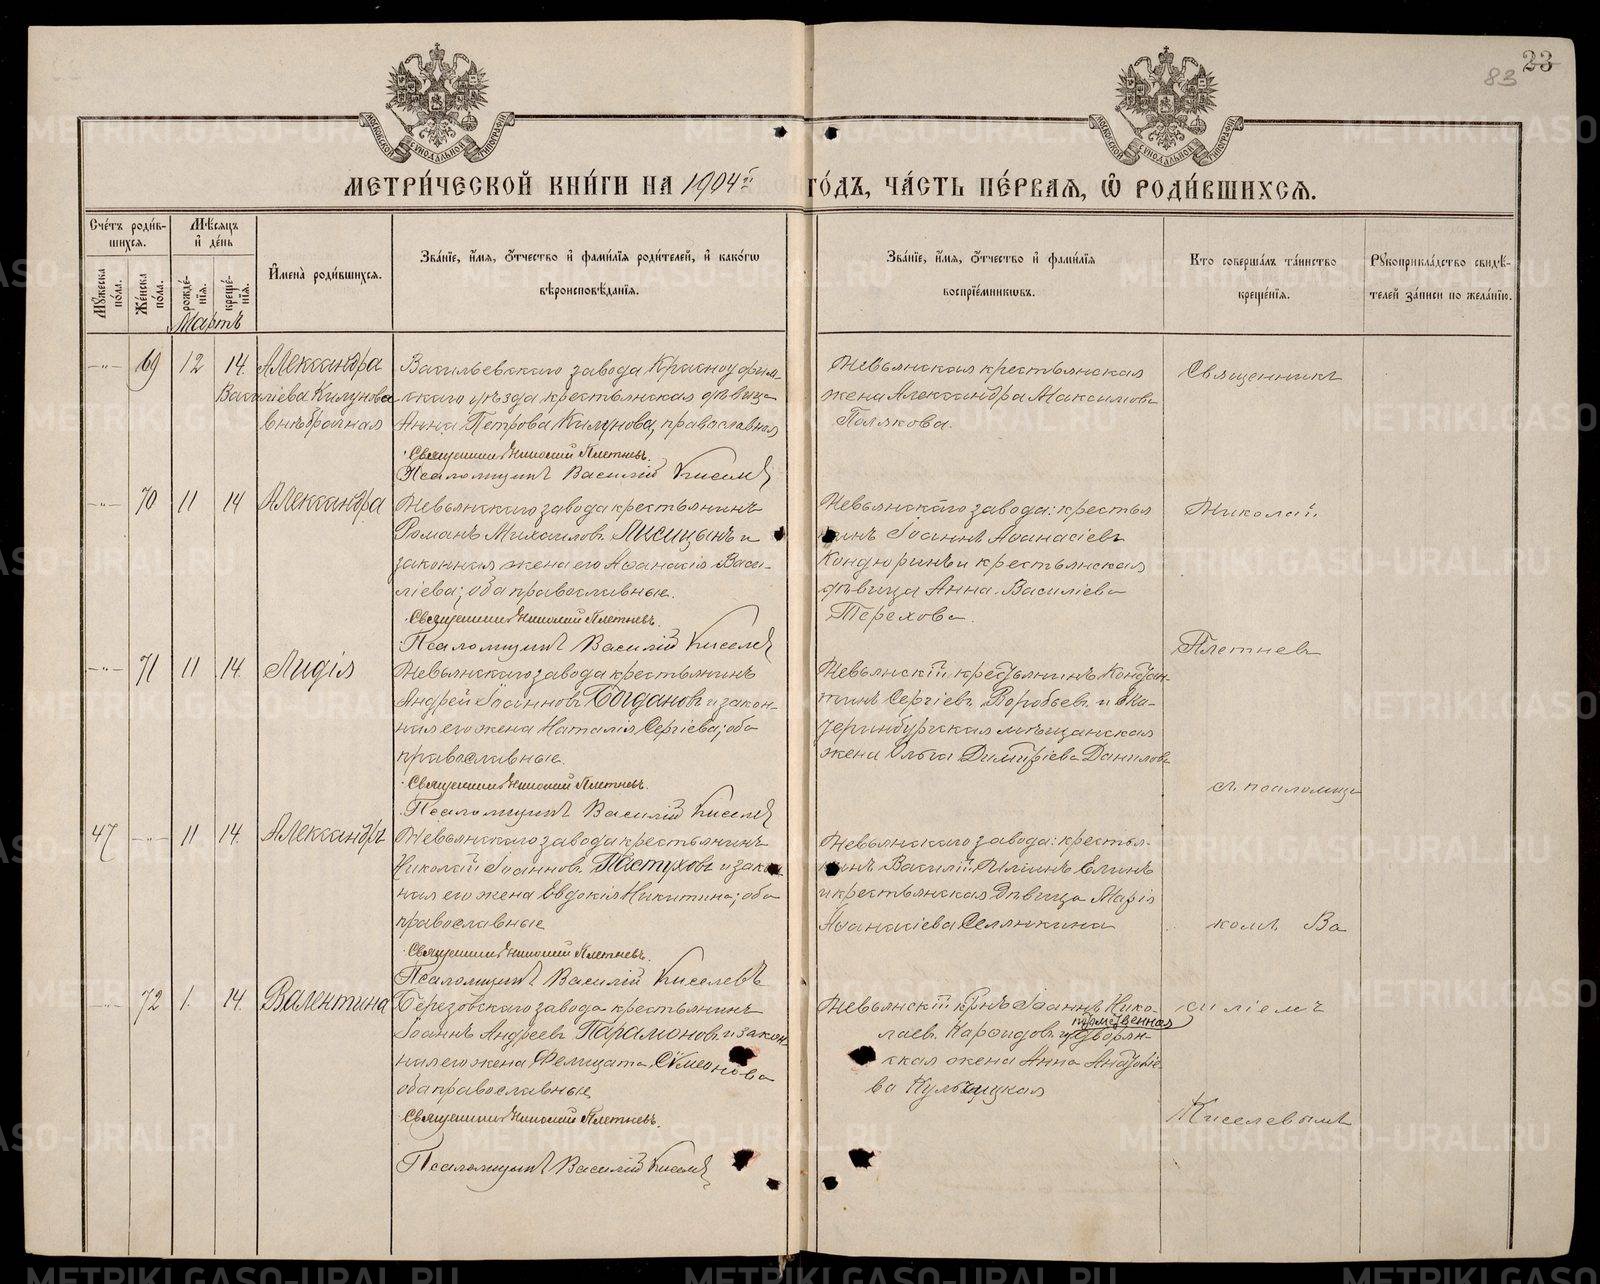 23
83
МОСКОВСКОЙ СѴНОДАЛЬНОЙ ТИПОГРАФІИ
МОСКОВСКОЙ СѴНОДАЛЬНОЙ ТИПОГРАФІИ
МЕТРИ́ЧЕСКОЙ КНИ́ГИ НА 1904й ГО́ДЪ, ЧА́СТЬ ПЕ́РВАЯ, Ѡ РОДИ́ВШИХСЯ.
Сче́тъ роди́вшихся.
Му́жеска по́ла.
Же́нска по́ла.
Мѣ́сяцъ и́ де́нь
рожде́нїѧ.
креще́нїѧ.
И҆мена̀ роди́вшихсѧ.
Зва́нїе, и҆́мѧ, ѻ҆́тчество и҆ фами́лїѧ роди́телей, и҆ како́гѡ
вѣроисповѣ́данїѧ.
Зва́нїе, и҆́мѧ, ѻ҆́тчество и҆ фами́лїѧ
воспрїе́мникѡвъ.
Кто соверша́лъ та́инство
креще́нїѧ.
Рꙋкоприкла́дство свидѣ́-
телей за́писи по жела́нїю.
Мартъ
-"- 69 12 14. Александра
Василіева Килунова
внѣбрачная
Васильевскаго завода Красноуфим-
скаго уѣзда крестьянская дѣвица
Анна Петрова Килунова, православная
Священникъ Николай Плетневъ.
Псаломщикъ Василій Киселевъ
Невьянская крестьянская
жена Александра Максимова
Полякова.
Священникъ
-"- 70 11 14 Александра
Невьянскаго завода крестьянинъ
Романъ Михаиловъ Лисицынъ и
законная жена его Аѳанасія Васи-
ліева; оба православные.
Священникъ Николай Плетневъ.
Псаломщикъ Василій Киселевъ
Невьянскаго завода: крестья
нинъ Іоаннъ Аѳанасіевъ
Кондюринъ и крестьянская
дѣвица Анна Василіева
Терехова.
Николай
Плетневъ
-"- 71 11 14. Лидія
Невьянскаго завода крестьянинъ
Андрей Іоанновъ Богдановъ и закон-
ная его жена Наталія Сергіева; оба
православные.
Священникъ Николай Плетневъ.
Псаломщикъ Василій Киселевъ
Невьянскій крестьянинъ Констан-
тинъ Сергіевъ Воробьевъ и Ека-
теринбургская мѣщанская
жена Ольга Димитріева Данилова
съ псаломщи
47 -"- 11 14. Александръ
Невьянскаго завода крестьянинъ
Николай Іоанновъ Пастуховъ и закон
ная его жена Евдокія Никитина; оба
православные
Священникъ Николай Плетневъ.
Псаломщикъ Василій Киселевъ
Невьянскаго завода: крестья-
нинъ Василій Ильинъ Елинъ
и крестьянская дѣвица Марія
Аѳанасіева Селянкина
комъ Ва
-"- 72 1. 14. Валентина
Березовскаго завода крестьянинъ
Іоаннъ Андреевъ Парамоновъ и закон-
ная его жена Фелицата Симеонова
оба православные
Священникъ Николай Плетневъ.
Псаломщикъ Василій Киселевъ
Невьянскій кр-нъ Іоаннъ Нико-
лаевъ и потомственная дворян-
ская жена Анна
ва Кульчицкая
силіемъ
Киселевымъ
METRIKI.GASO-URAL.RU